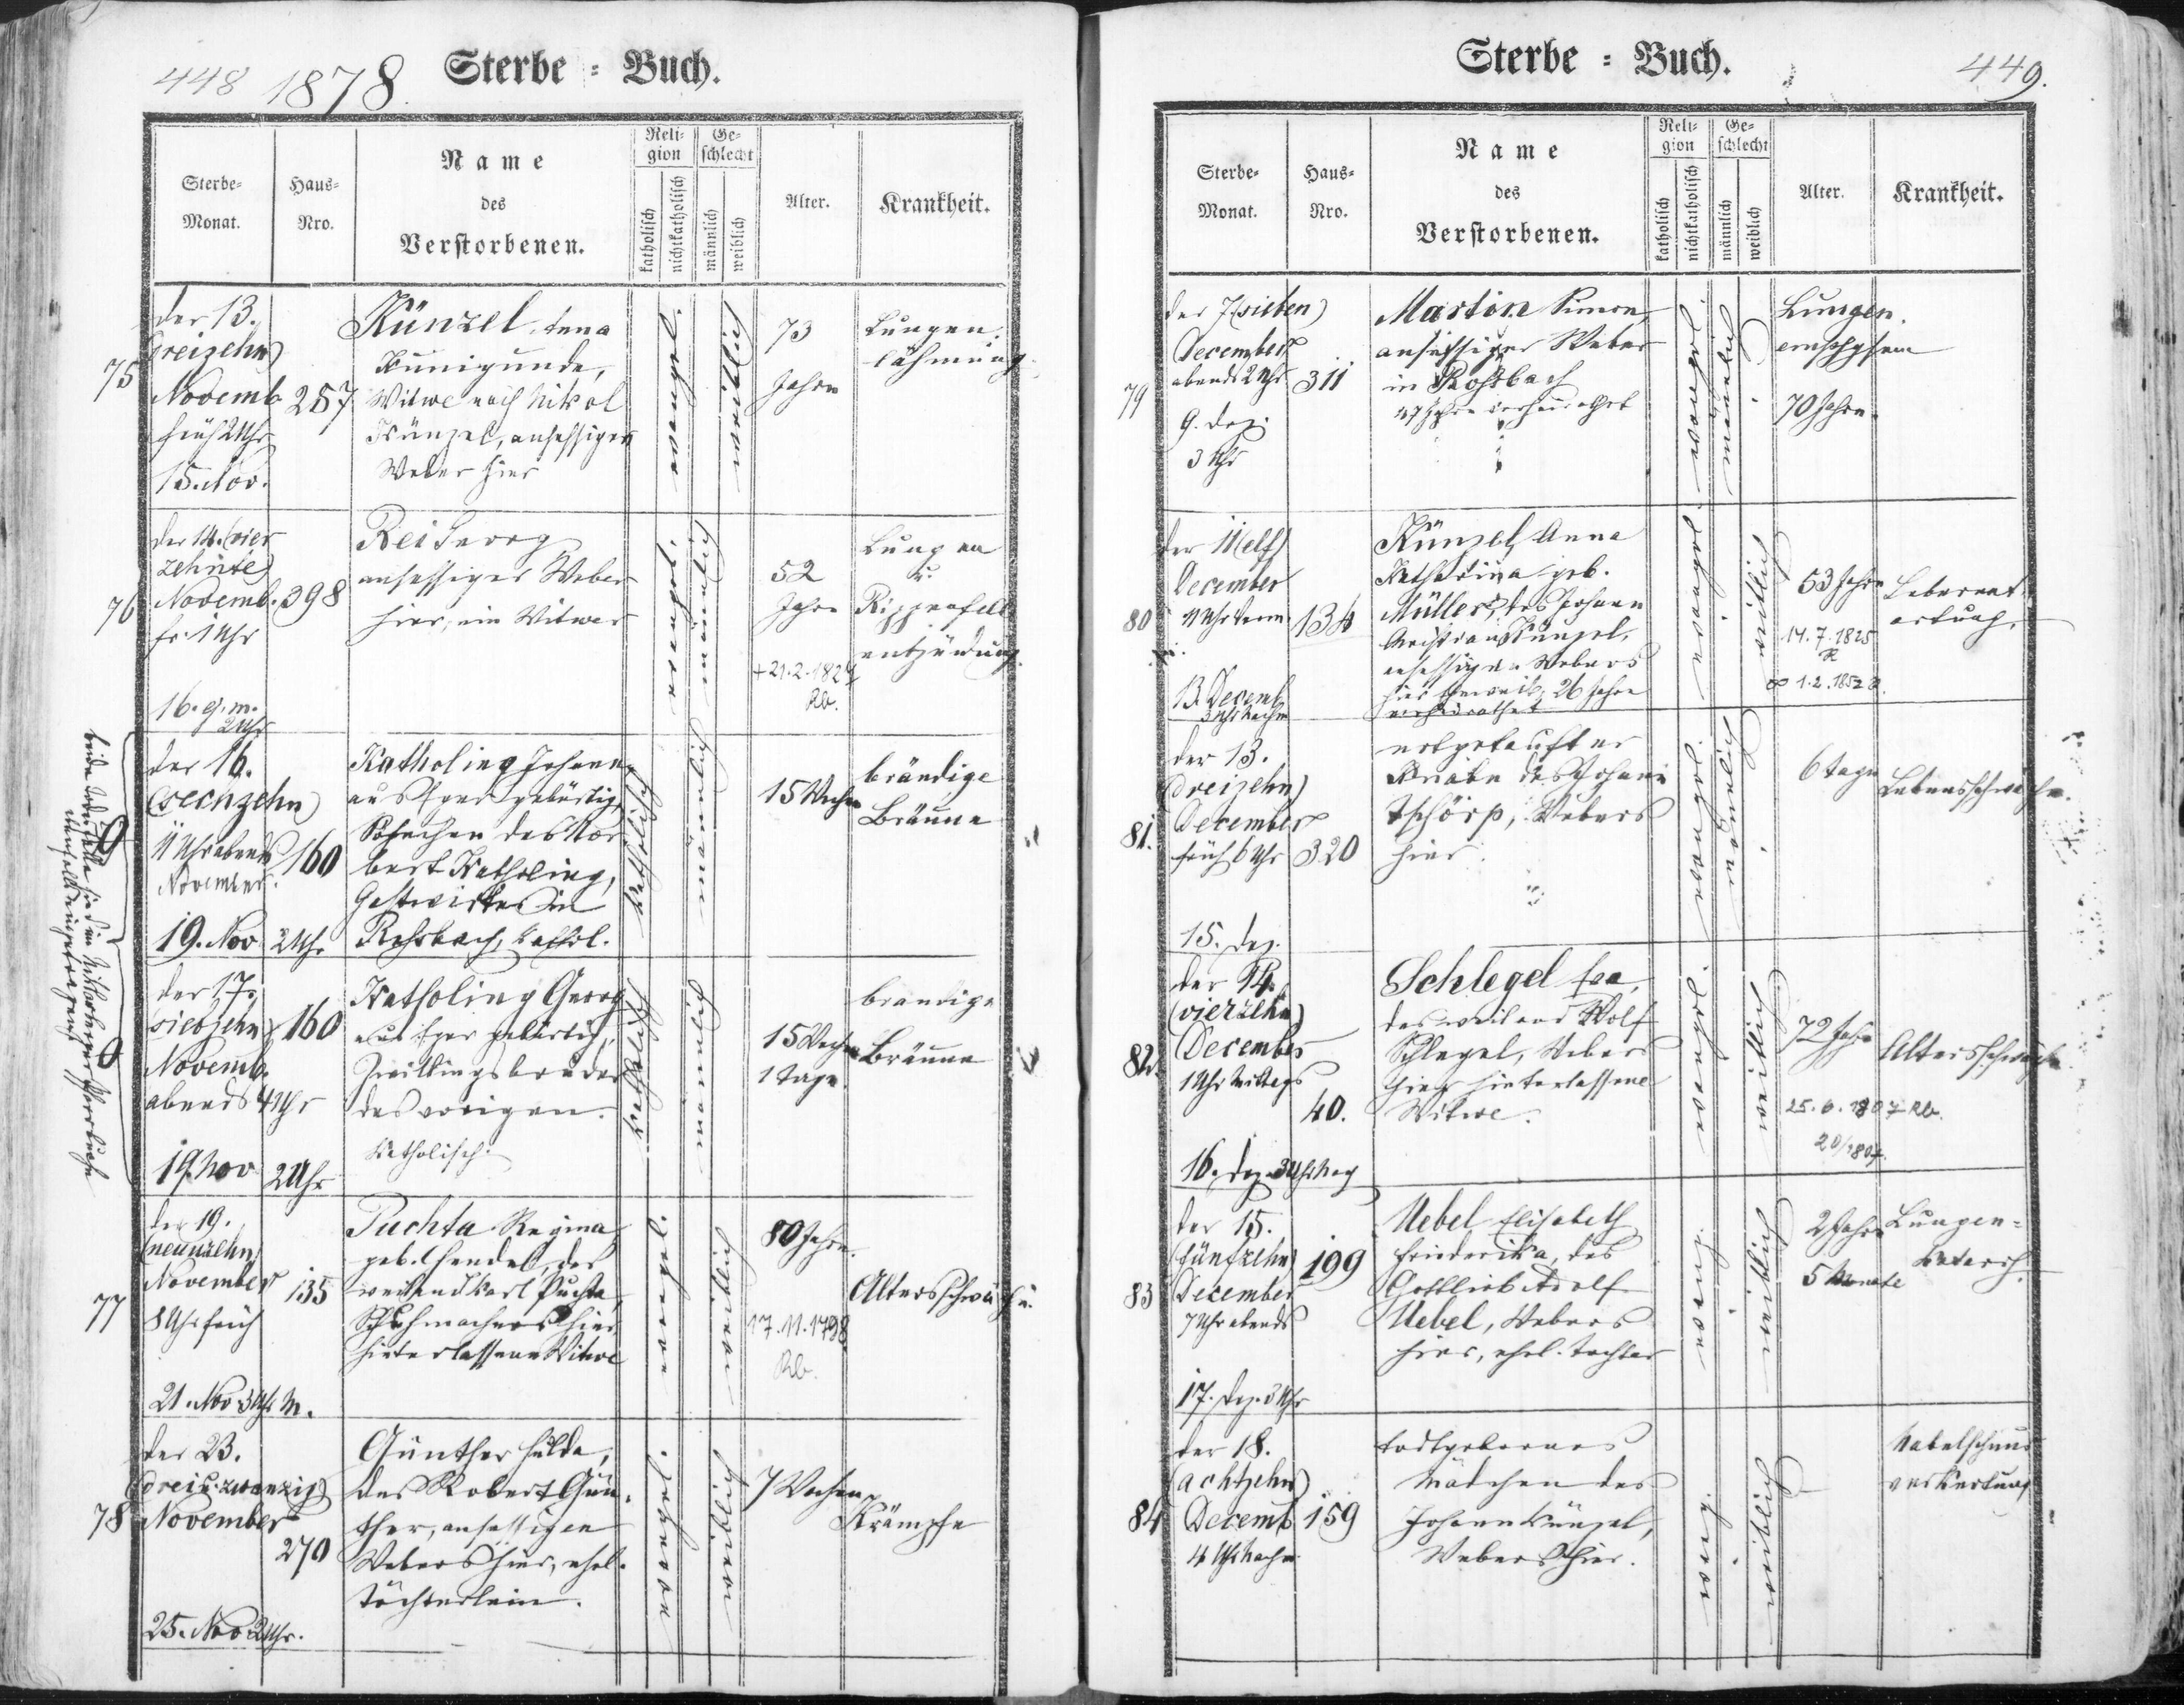 448 1878. Sterbe = Buch.
Sterbe-
Monat.
Haus-
Nro.
Name
des
Verstorbenen.
Reli-
gion
katholisch
nichtkatholisch
Ge-
schlecht
männlich
weiblich
Alter.
Krankheit.
75
der 13.
(dreizehn)
Novemb.
früh 2 Uhr
15. Nov.
257
Künzel,
Kunigunde,
Witwe nach Nikol
Künzel, ansessigen
Weber hier
evangel.
weiblich
73
Jahre
Lungen-
lähmung.
76
der 14. (vier
zehnte)
Novemb.
fr. 1 Uhr
16. ej. m.
2 Uhr
398
Rei Georg
ansessiger Weber
hier, ein Witwer
evangel.
männlich
52
Jahre
+21.2.1827
Rb.
Lungen
u.
Rippenfell
entzündung.
der 16.
(sechzehn)
11 Uhr abends
November.
19. Nov 2 Uhr
160
Katholing Johann
aus Eger gebürtig,
Söhnchen des Nor
bert Katholing,
Gastwirthes in
Rossbach, kathol.
katholisch
männlich
15 Wochen
brandige
Bräune
der 17.
siebzehn
Novemb.
abends 4 Uhr
19. Nov 2 Uhr
160
Katholing Georg
aus Eger gebürtig,
Zwillingsbruder
des vorigen.
Katholisch.
katholisch
männlich
15 Wochen
1 Tage.
brandige
Bräune
77
der 19.
(neunzehn)
November
8 Uhr früh
21. Nov 3 Uhr N.
135
Puchta Regina
geb. Hendel, des
weiland Karl Puchta,
Schuhmachers hier,
hinterlassene Witwe
evangel.
weiblich
80 Jahre.
17.11.1798
Rb.
Altersschwäche.
78
der 23.
(drei u. zwanzig)
November
25. Nov 2 Uhr.
270
Günther Hulda,
des Robert Gün-
ther, ansässigen
Webers hier, ehel.
Töchterlein.
evangel.
weiblich
7 Wochen
Krämpfe
Sterbe = Buch. 449.
Sterbe-
Monat.
Haus-
Nro.
Name
des
Verstorbenen.
Reli-
gion
katholisch
nichtkatholisch
Ge-
schlecht
männlich
weiblich
Alter.
Krankheit.
79
der 7 (sieben)
December
abends 2 Uhr
9. Dez.
3 Uhr
311
Martin Simon,
ansessiger Weber
in Roßbach
47 Jahre verheirathet
evangel.
männlich
Lungen
emphysem
70 Jahre.
80
der 11 (elf)
December
11 Uhr Vorm.
13. Decemb
3 Uhr Nachm
134
Künzel, Anna
Katharina geb.
Müller, des Johann
Christian Künzel,
ansessigen Webers
hier Eheweib, 26 Jahre
verheirathet
evangel.
weiblich
53 Jahre
14.7.1825
R
∞ 1.2.1852 R.
Leberent
artung.
81.
der 13.
(dreizehn)
December
früh 6 Uhr
15. Dez.
320
notgetaufter
Knabe des Johann
Tschörp, Webers
hier.
evangel.
männlich
6 Tage
Lebensschwäche.
82.
der 14.
(vierzehn)
December
1 Uhr Mittags
16. Dez. 3 Uhr Nag
40.
Schlegel Eva,
des weiland Wolf
Schlegel, Webers
hier hinterlassene
Witwe.
evangel.
weiblich
72 Jahre
25.6.1807 Rb.
20/1807.
Altersschwäche
83
der 15.
(fünfzehn)
December
7 Uhr abends
17. Dez. 3 Uhr
199
Uebel Elisabeth
Friederika, des
Gottlieb Adolf
Uebel, Webers
hier, ehel. Tochter
evang.
weiblich
2 Jahre
5 Monate
Lungen-
katarrh.
84
der 18.
(achtzehn)
Decemb
4 Uhr Nachm
159
todtgebornes
Mädchen des
Johann Künzel,
Webers hier.
evang.
weiblich
Nabelschnur